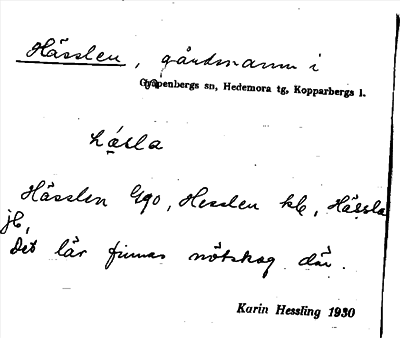 Hässlen, gårdsnamn i
Grangärdenbergs sn, Hedemora tg, Kopparbergs l.
hä́sla
Hässlen Ggo, Hesslen kbl, Hässla
jb,
Det lär finnas nötskog där.
Karin Hessling 1930